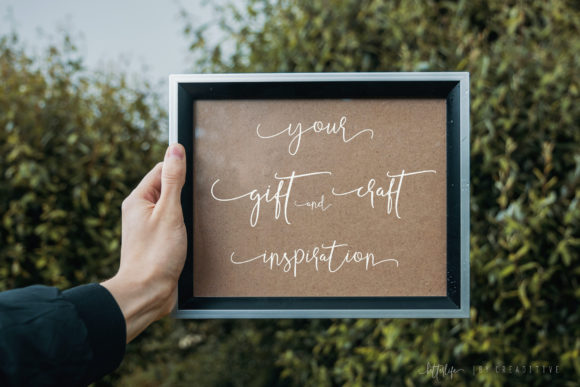 your
gift and craft
inspiration
| BY CREADITIVE